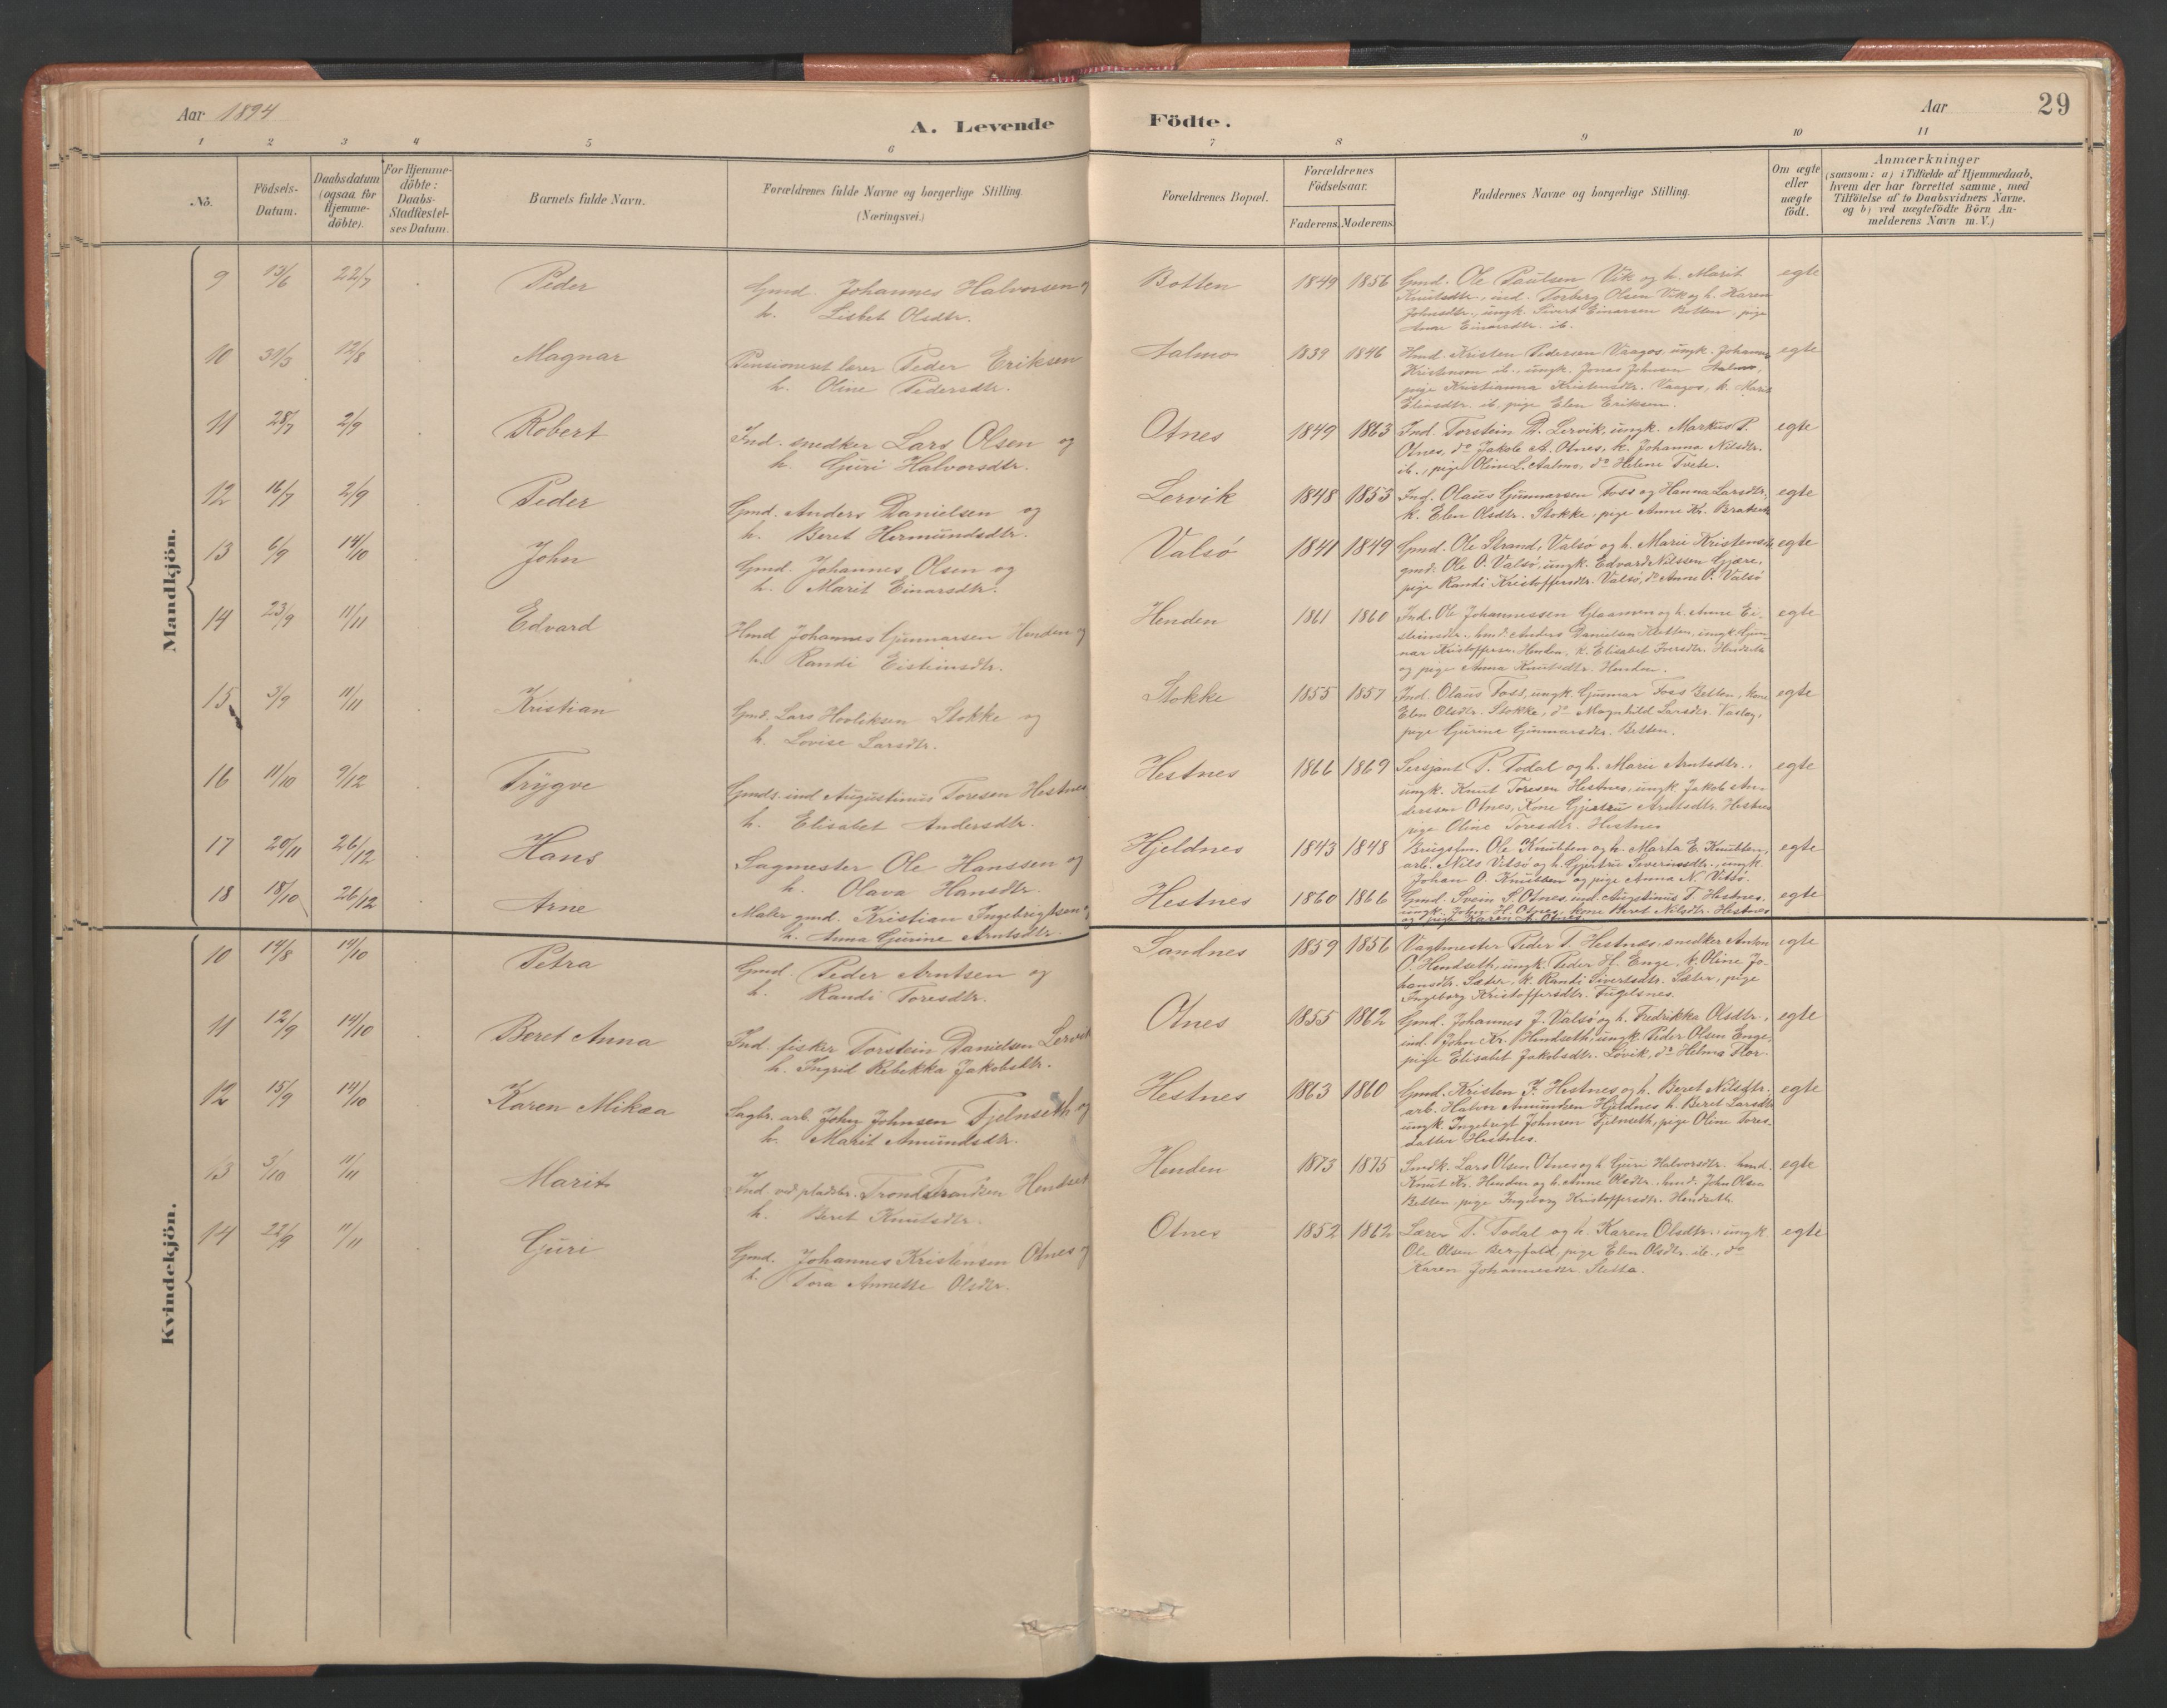 Aar 1894
A. Levende Födte.
Aar
29
1 2 3 4 5 6 7 8 9 10 11
No.
Födsels-Datum.
Daabsdatum (ogsaa for Hjemme-döbte).
For Hjemme-döbte: Daabs-Stadfæstel-ses Datum.
Barnets fulde Navn.
Forældrenes fulde Navne og borgerlige Stilling (Næringsvei.)
Forældrenes Bopæl.
Forældrenes Födselsaar.
Faderens. Moderens.
Faddernes Navne og borgerlige Stilling.
Om ægte eller uægte födt.
Anmærkninger
(saasom: a) i Tilfælde af Hjemmedaab,
hvem der har forrettet samme, med
Tilföielse af to Daabsvidners Navne.
og b) ved uægtefödte Börn An-
melderens Navn m.V.)
Mandkjön.
9 13/6 22/7 Peder Gmd. Johannes Halvorsen og Botten 1849 1856 Gmd. Ole Paulsen Vik og h. Marit egte
h. Lisbet Olsdtr. Knutsdtr., ind. Torberg Olsen Vik og h. Karen
Johnsdtr., ungk. Sivert Einarsen Botten, pige
Anne Einarsdtr. ib.
10 31/5 12/8 Magnar Pensioneret lærer Peder Eriksen Aalmo 1839 1846 Hmd. Kristen Pedersen Vaagos, ungk. Johannes egte
h. Oline Pedersdtr. Kristensen ib., ungk. Jonas Johnsen Aalmo,
pige Kristianna Kristensdtr. Vaagos, k. Marit
Eliasdtr. ib, pige Elen Eriksen.
11 28/7 2/9 Robert Ind. snedker Lars Olsen og Otnes 1849 1863 Ind. Torstein D. Lervik, ungk. Markus P. egte
h. Guri Halvorsdtr. Otnes, do Jakob A. Otnes, k. Johanna Nilsdtr.
ib., pige Oline L. Aalmo, do Helene Tvete.
12 16/7 2/9 Peder Gmd. Anders Danielsen og Lervik 1848 1853 Ind. Olaus Gunnarsen Foss og Hanna Larsdtr, egte
h. Beret Hermundsdtr. k. Elen Olsdtr. Stokke, pige Anne Kr.
13 6/9 14/10 John Gmd. Johannes Olsen og Valsö 1841 1849 Gmd. Ole Strand, Valsö og h. Marie Kristensdtr egte
h. Marit Einarsdtr. gmd. Ole O. Valsö, ungk. Edvard Nilssen Gjære,
pige Randi Kristoffersdtr. Valsö, do Anne O. Valsö
14 23/9 11/11 Edvard Hmd Johannes Gunnarsen Henden og Henden 1861 1860 Ind. Ole Johannessen Glaamen og h. Anne Ei- egte
h. Randi Eisteinsdtr. steinsdtr., hmd. Anders Danielsen Hatten, ungk. Gun-
nar Kristoffersen Henden, k. Elisabet Iversdtr. Hendseth
og pige Anna Knutsdtr. Henden.
15 3/9 11/11 Kristian Gmd. Lars Hovliksen Stokke og Stokke 1855 1857 Ind. Olaus Foss, ungk. Gunnar Foss Betten, kone egte
h. Lovise Larsdtr. Elen Olsdtr. Stokke, do Magnhild Larsdtr. Vaslag,
pige Gurine Gunnarsdtr. Betten.
16 11/10 9/12 Trygve Gmds. ind Augustinus Toresen Hestnes Hestnes 1866 1869 Sersjant P. Todal og h. Marie Arntsdtr., egte
h. Elisabet Andersdtr. ungk. Knut Toresen Hestnes, ungk. Jakob An-
derssen Otnes, Kone Gjertru Arntsdtr. Hestnes
pige Oline Toresdtr. Hestnes
17 20/11 26/12 Hans Sagmester Ole Hanssen og Hjeldnes 1843 1848 Brugsfm. Ole Knubten og h. Marta E. Knubten, egte
h. Olava Hansdtr. arb. Nils Vitsö og h. Gjertru Severinsdtr., ungk.
Johan O. Knubben og pige Anna N. Vitsö.
18 18/10 26/12 Arne Maler gmd. Kristian Ingebrigtsen og Hestnes 1860 1866 Gmd. Svein S. Otnes, ind. Augustinus T. Hestnes, egte
h. Anna Gurine Arntsdtr. ungk. John H. Otnes, kone Beret Nilsdtr. Hestnes
og pige Karen A. Otnes
Kvindekjön.
10 14/8 14/10 Petra Gmd. Peder Arntsen og Sandnes 1859 1856 Vagtmester Peder T. Hestnes, snedker Anton egte
h. Randi Toresdtr. O. Hendseth, ungk. Peder H. Enge, k. Oline Jo-
hansdtr. Sæter, k. Randi Sivertsdtr. Sæter, pige
Ingeborg Kristoffersdtr. Fugelsnes.
11 12/9 14/10 Beret Anna Ind. fisker Torstein Danielsen Lervik Otnes 1855 1862 Gmd. Johannes J. Valsö og h. Fredrikka Olsdtr., egte
h. Ingrid Rebekka Jakobsdtr. ind. John Kr. Hendseth, ungk. Peder Olsen Enge,
pige Elisabet Jakobsdtr. Lövik, do Helma Flor.
12 15/9 14/10 Karen Mikaa Sagbr. arb. John Johnsen Fjelnseth og Hestnes 1863 1860 Gmd. Kristen J. Hestnes og h. Beret Nilsdtr. egte
h. Marit Amundsdtr. arb. Halvor Amundsen Hjeldnes h. Beret Larsdtr
ungk. Ingebrigt Johnsen Fjelnseth, pige Oline Tores-
datter Hestnes.
13 3/10 11/11 Marit Ind. ved pladsbr. Trond Trondsen Hendset Henden 1873 1875 Smdk. Lars Olsen Otnes og h. Guri Halvorsdtr. hmd. egte
h. Beret Knutsdtr. Knut Kr. Henden og h. Anne Olsdtr. hmd. John Olsen
Betten, pige Ingeborg Kristoffersdtr. Hendseth.
14 22/9 11/11 Guri Gmd. Johannes Kristensen Otnes og Otnes 1852 1862 Lærer T. Todal og h. Karen Olsdtr., ungk. egte
h. Tora Annette Olsdtr. Ole Olsen Bergfald, pige Elen Olsdtr. ib., do
Karen Johannesdtr Sletta.